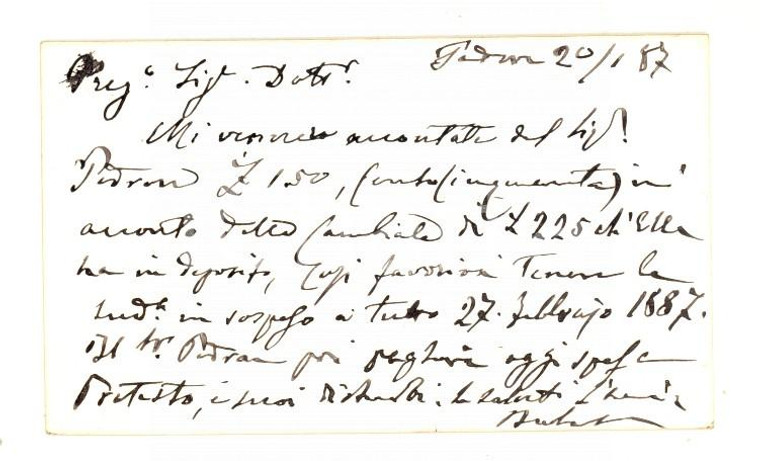 Padova 20/1 87
Preg.° Sig.r Dott.r
Mi vennero accontate dal Sig.r
Pedron £ 150, (centocinquanta) in
acconto della Cambiale di £ 225 ch'Ella
ha in deposito, così favorirà tenere la
sud.a in sospeso a tutto 27. Febbrajo 1887.
Il Sr. Pedron poi pagherà oggi spese
Protesto, e suoi disturbi. La saluti